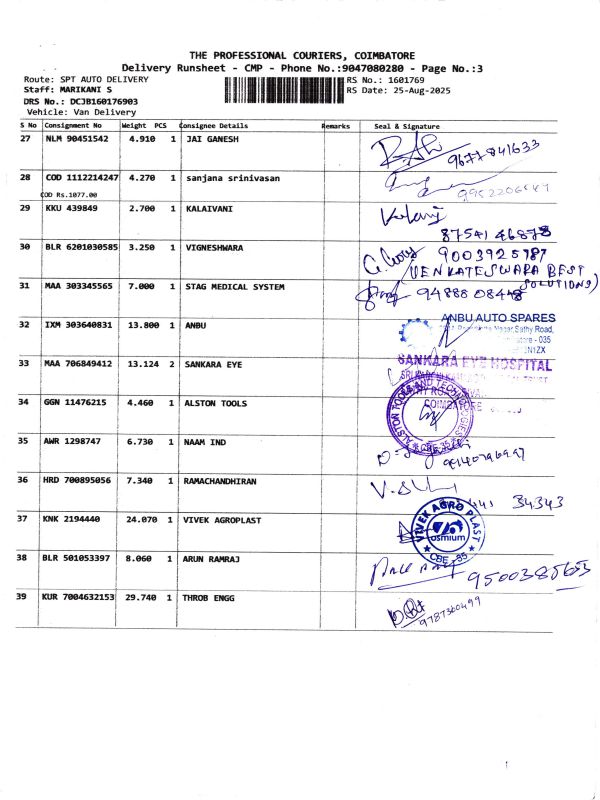 THE PROFESSIONAL COURIERS, COIMBATORE
Delivery Runsheet - CMP - Phone No.:9047080280 - Page No.:3
Route: SPT AUTO DELIVERY
RS No.: 1601769
Staff: MARIKANI S
RS Date: 25-Aug-2025
DRS No.: DCJB160176903
Vehicle: Van Delivery
S No Consignment No Weight PCS Consignee Details Remarks Seal & Signature
27 NLM 90451542 4.910 1 JAI GANESH
9677841633
28 COD 1112214247 4.270 1 sanjana srinivasan
COD Rs.1077.00
29 KKU 439849 2.700 1 KALAIVANI
8754146878
30 BLR 6201030585 3.250 1 VIGNESHWARA
9003925787
(VENKATESWARA BEST
SOLUTIONS)
31 MAA 303345565 7.000 1 STAG MEDICAL SYSTEM
32 IXM 303640831 13.800 1 ANBU
ANBU AUTO SPARES
Nagar, Sathy Road,
- 035
33 MAA 706849412 13.124 2 SANKARA EYE
SANKARA EYE HOSPITAL
COIMBATORE
34 GGN 11476215 4.460 1 ALSTON TOOLS
ALSTON TOOLS AND TECHNOLOGIES
CBE-35
35 AWR 1298747 6.730 1 NAAM IND
36 HRD 700895056 7.340 1 RAMACHANDHIRAN
34343
37 KNK 2194440 24.070 1 VIVEK AGROPLAST
VIVEK AGRO PLAST
osmium
CBE - 35
38 BLR 501053397 8.060 1 ARUN RAMRAJ
39 KUR 7004632153 29.740 1 THROB ENGG
9787360499